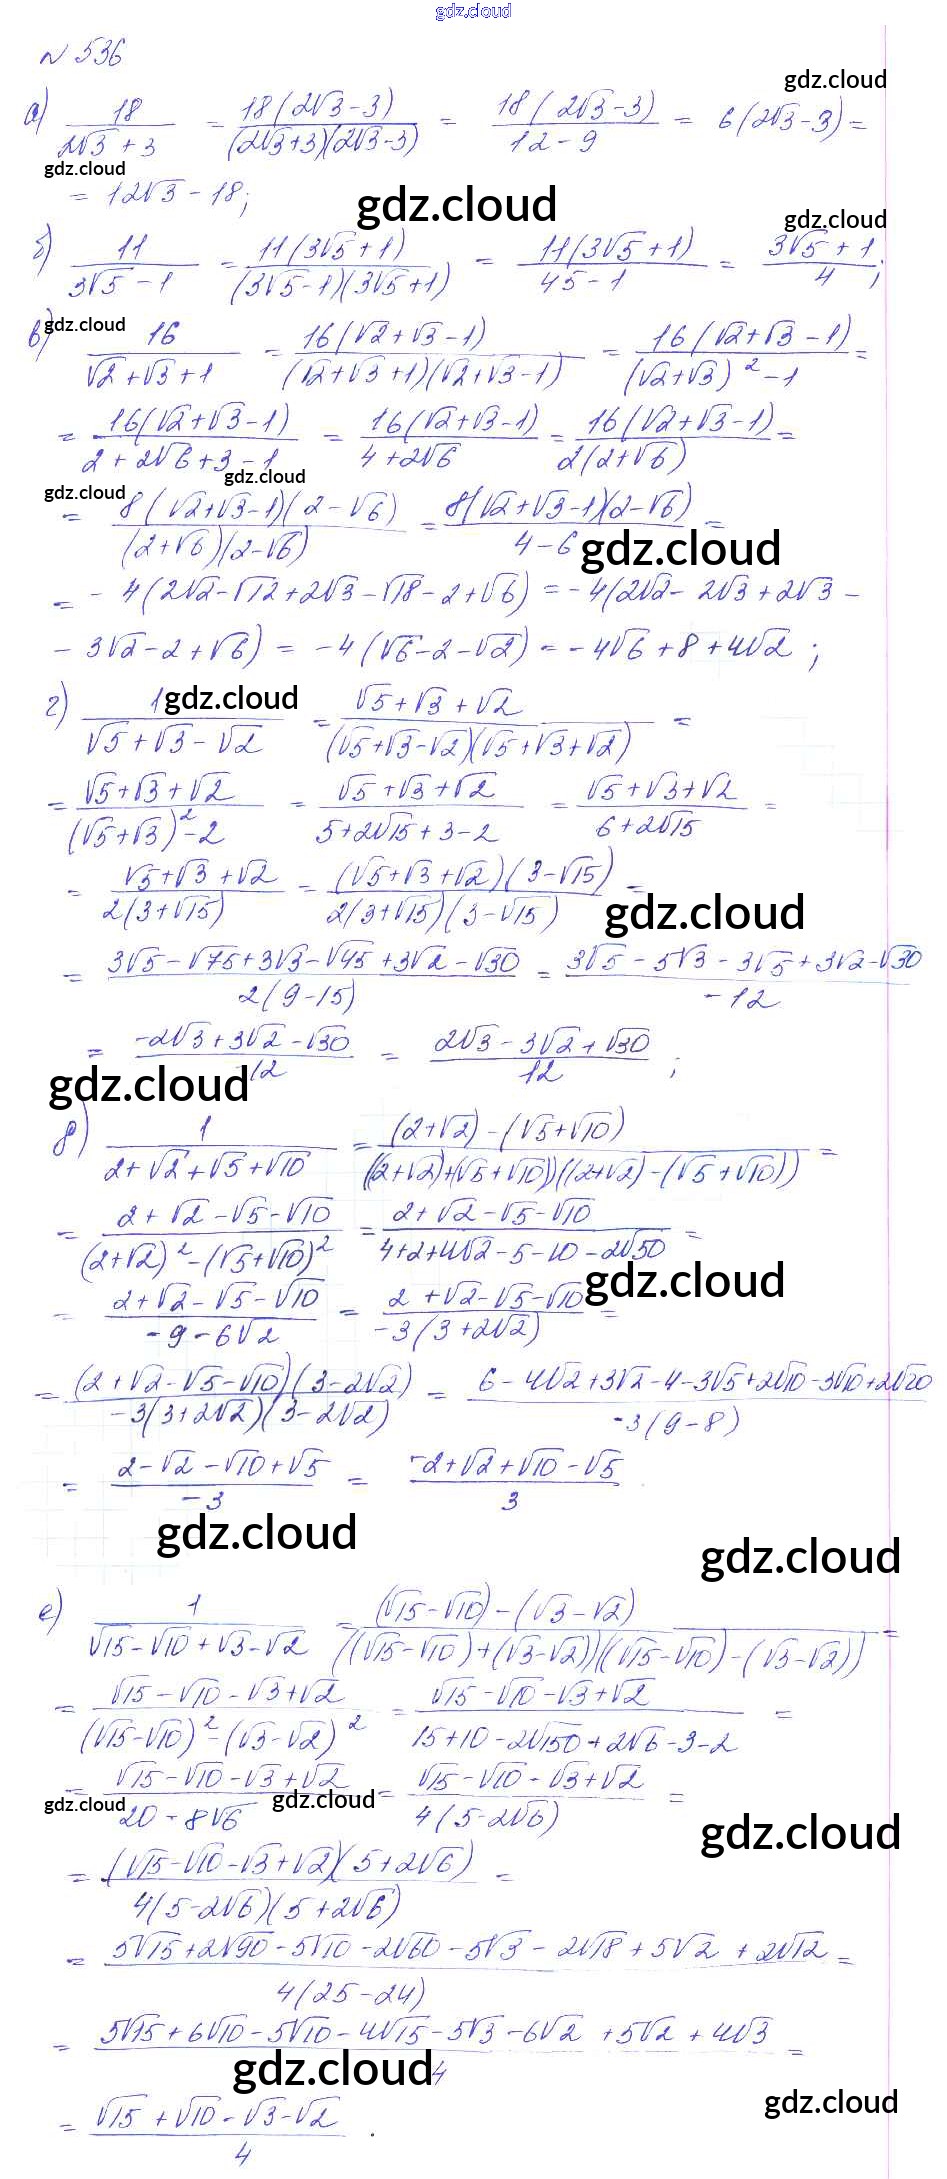 gdz.cloud
№ 536
gdz.cloud
а) 18/(2√3 + 3) = 18(2√3 - 3)/((2√3+3)(2√3-3)) = 18(2√3-3)/(12-9) = 6(2√3-3) =
gdz.cloud
= 12√3 - 18;
gdz.cloud
gdz.cloud
б) 11/(3√5 - 1) = 11(3√5+1)/((3√5-1)(3√5+1)) = 11(3√5+1)/(45-1) = (3√5+1)/4;
gdz.cloud
в) 16/(√2+√3+1) = 16(√2+√3-1)/((√2+√3+1)(√2+√3-1)) = 16(√2+√3-1)/((√2+√3)²-1) =
= 16(√2+√3-1)/(2+2√6+3-1) = 16(√2+√3-1)/(4+2√6) = 16(√2+√3-1)/(2(2+√6)) =
gdz.cloud
gdz.cloud
= 8(√2+√3-1)(2-√6)/((2+√6)(2-√6)) = 8(√2+√3-1)(2-√6)/(4-6) =
gdz.cloud
= -4(2√2-√12+2√3-√18-2+√6) = -4(2√2-2√3+2√3-
-3√2-2+√6) = -4(√6-2-√2) = -4√6+8+4√2;
gdz.cloud
г) 1/(√5+√3-√2) = (√5+√3+√2)/((√5+√3-√2)(√5+√3+√2)) =
= (√5+√3+√2)/((√5+√3)²-2) = (√5+√3+√2)/(5+2√15+3-2) = (√5+√3+√2)/(6+2√15) =
= (√5+√3+√2)/(2(3+√15)) = (√5+√3+√2)(3-√15)/(2(3+√15)(3-√15)) =
gdz.cloud
= (3√5-√75+3√3-√45+3√2-√30)/(2(9-15)) = (3√5-5√3-3√5+3√2-√30)/(-12)
= (-2√3+3√2-√30)/(-12) = (2√3-3√2+√30)/12;
gdz.cloud
д) 1/(2+√2+√5+√10) = ((2+√2)-(√5+√10))/(((2+√2)+(√5+√10))((2+√2)-(√5+√10))) =
= (2+√2-√5-√10)/((2+√2)²-(√5+√10)²) = (2+√2-√5-√10)/(4+2+4√2-5-10-2√50) =
gdz.cloud
= (2+√2-√5-√10)/(-9-6√2) = (2+√2-√5-√10)/(-3(3+2√2)) =
= (2+√2-√5-√10)(3-2√2)/(-3(3+2√2)(3-2√2)) = (6-4√2+3√2-4-3√5+2√10-3√10+2√20)/(-3(9-8))
= (2-√2-√10+√5)/(-3) = (-2+√2+√10-√5)/3.
gdz.cloud
gdz.cloud
е) 1/(√15-√10+√3-√2) = ((√15-√10)-(√3-√2))/(((√15-√10)+(√3-√2))((√15-√10)-(√3-√2))) =
= (√15-√10-√3+√2)/((√15-√10)²-(√3-√2)²) = (√15-√10-√3+√2)/(15+10-2√150+2√6-3-2) =
= (√15-√10-√3+√2)/(20-8√6) = (√15-√10-√3+√2)/(4(5-2√6)) =
gdz.cloud
gdz.cloud
gdz.cloud
= (√15-√10-√3+√2)(5+2√6)/(4(5-2√6)(5+2√6)) =
= (5√15+2√90-5√10-2√60-5√3-2√18+5√2+2√12)/(4(25-24)) =
= (5√15+6√10-5√10-4√15-5√3-6√2+5√2+4√3)/4 =
gdz.cloud
gdz.cloud
= (√15+√10-√3-√2)/4.